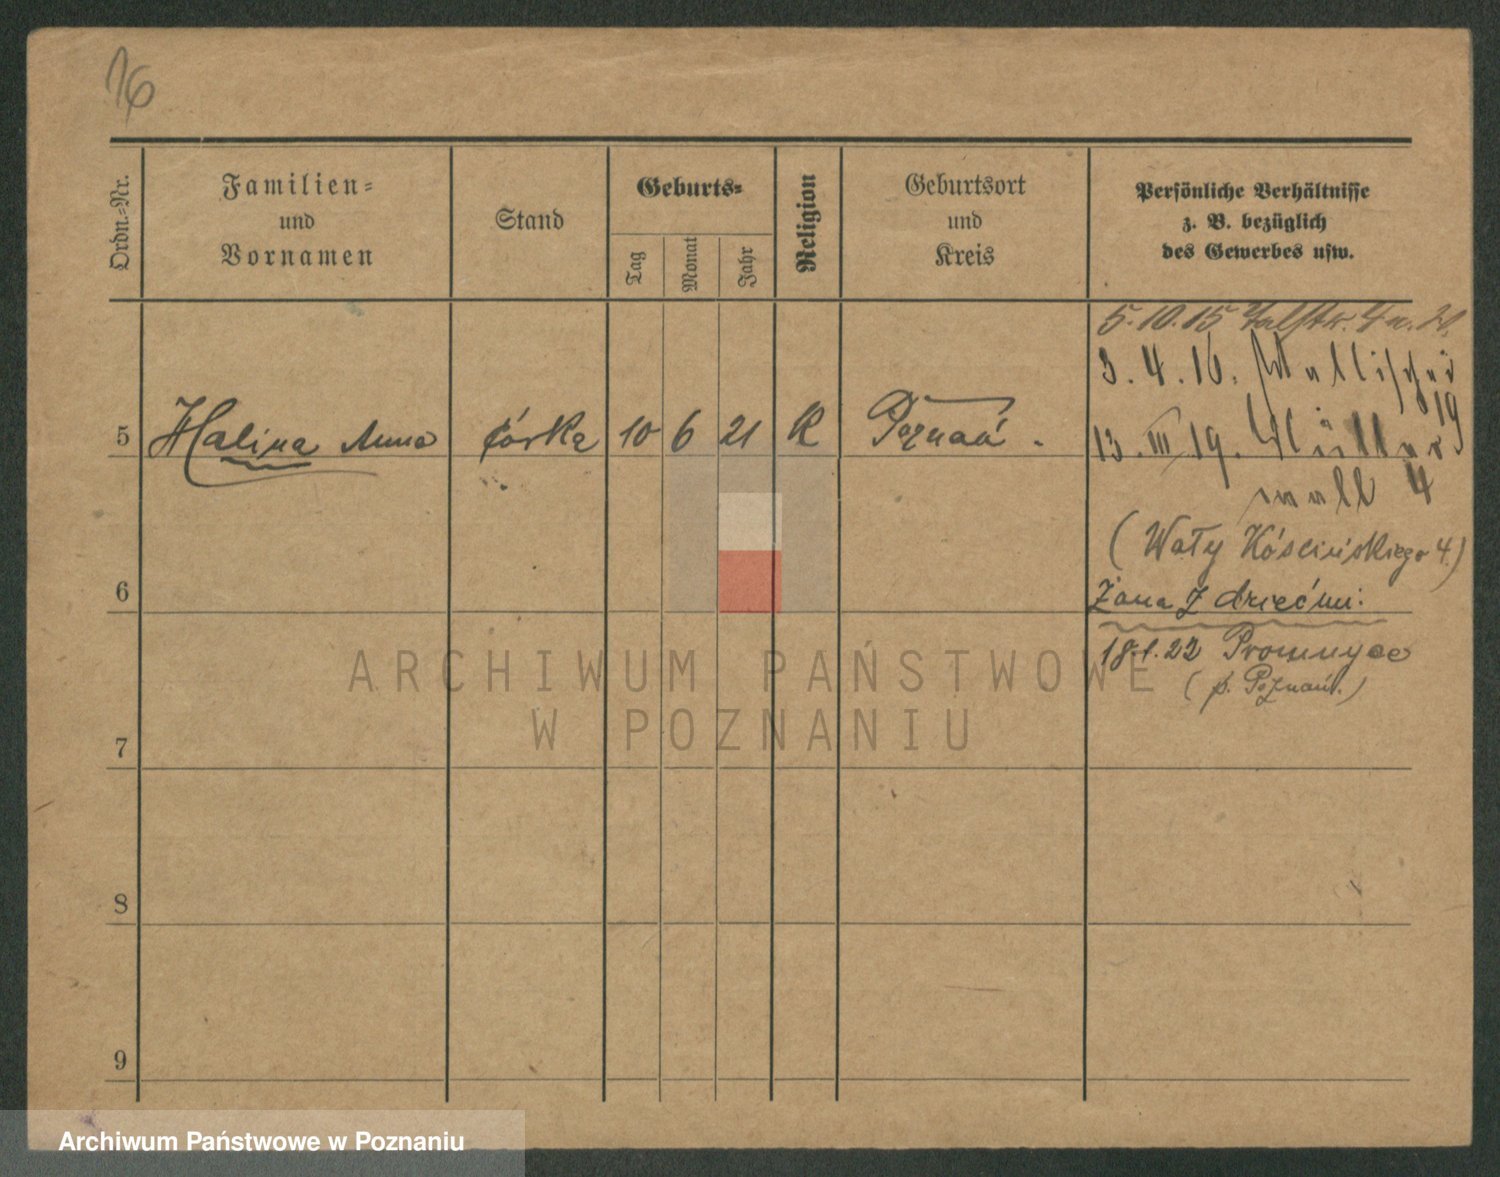 16
Ordn.-Nr.
Familien-
und
Vornamen
Stand
Geburts-
Tag
Monat
Jahr
Religion
Geburtsort
und
Kreis
Persönliche Verhältnisse
z. B. bezüglich
des Gewerbes usw.
5.10.15 Halbstr.
3.4.16. Wallischei
19
5 Halina Anna córka 10 6 21 K Poznań.
13.III.19. Müller
wall 4
(Wały Kościńskiego 4.)
6
Żona z dziećmi.
18.1.22 Promnyce
(p. Poznań.)
7
8
9
ARCHIWUM PAŃSTWOWE
W POZNANIU
Archiwum Państwowe w Poznaniu